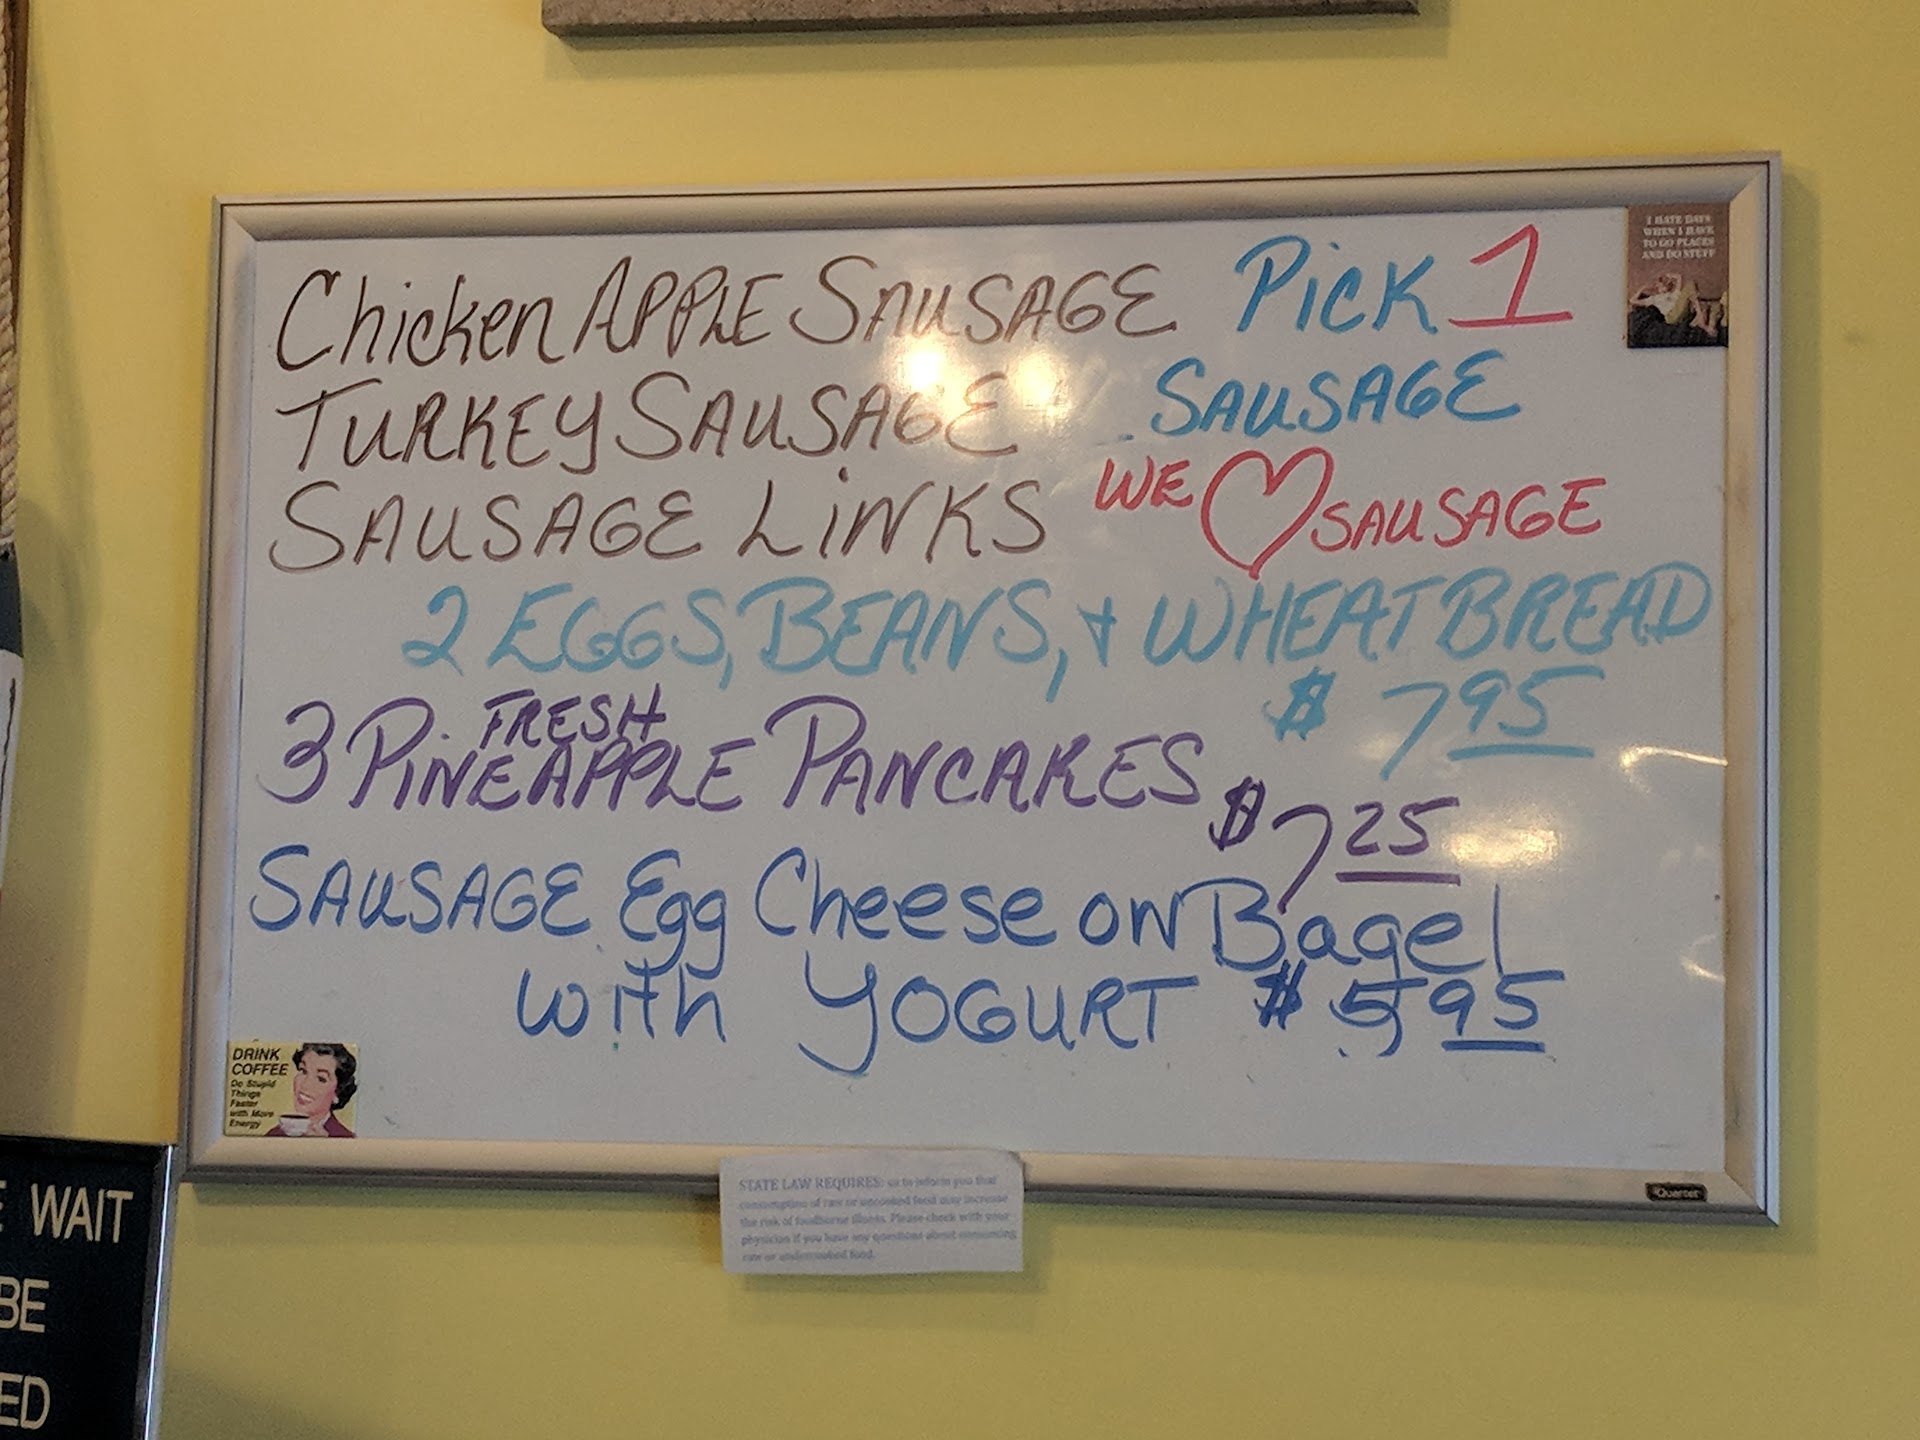 I HATE DAYS
WHEN I HAVE
TO GO PLACES
AND DO STUFF
Chicken APPLE SAUSAGE PICK 1
TURKEY SAUSAGE SAUSAGE
SAUSAGE LINKS WE ♡ SAUSAGE
2 EGGS, BEANS, + WHEAT BREAD
$ 7 95
FRESH
3 PINEAPPLE PANCAKES
$ 7 25
SAUSAGE Egg Cheese ON Bagel
with YOGURT $ 5 95
DRINK
COFFEE
Do Stupid
Things
Faster
with More
Energy
Quartet
STATE LAW REQUIRES: us to inform you that
consumption of raw or uncooked food may increase
the risk of foodborne illness. Please check with your
physician if you have any questions about consuming
raw or undercooked food.
E WAIT
BE
ED